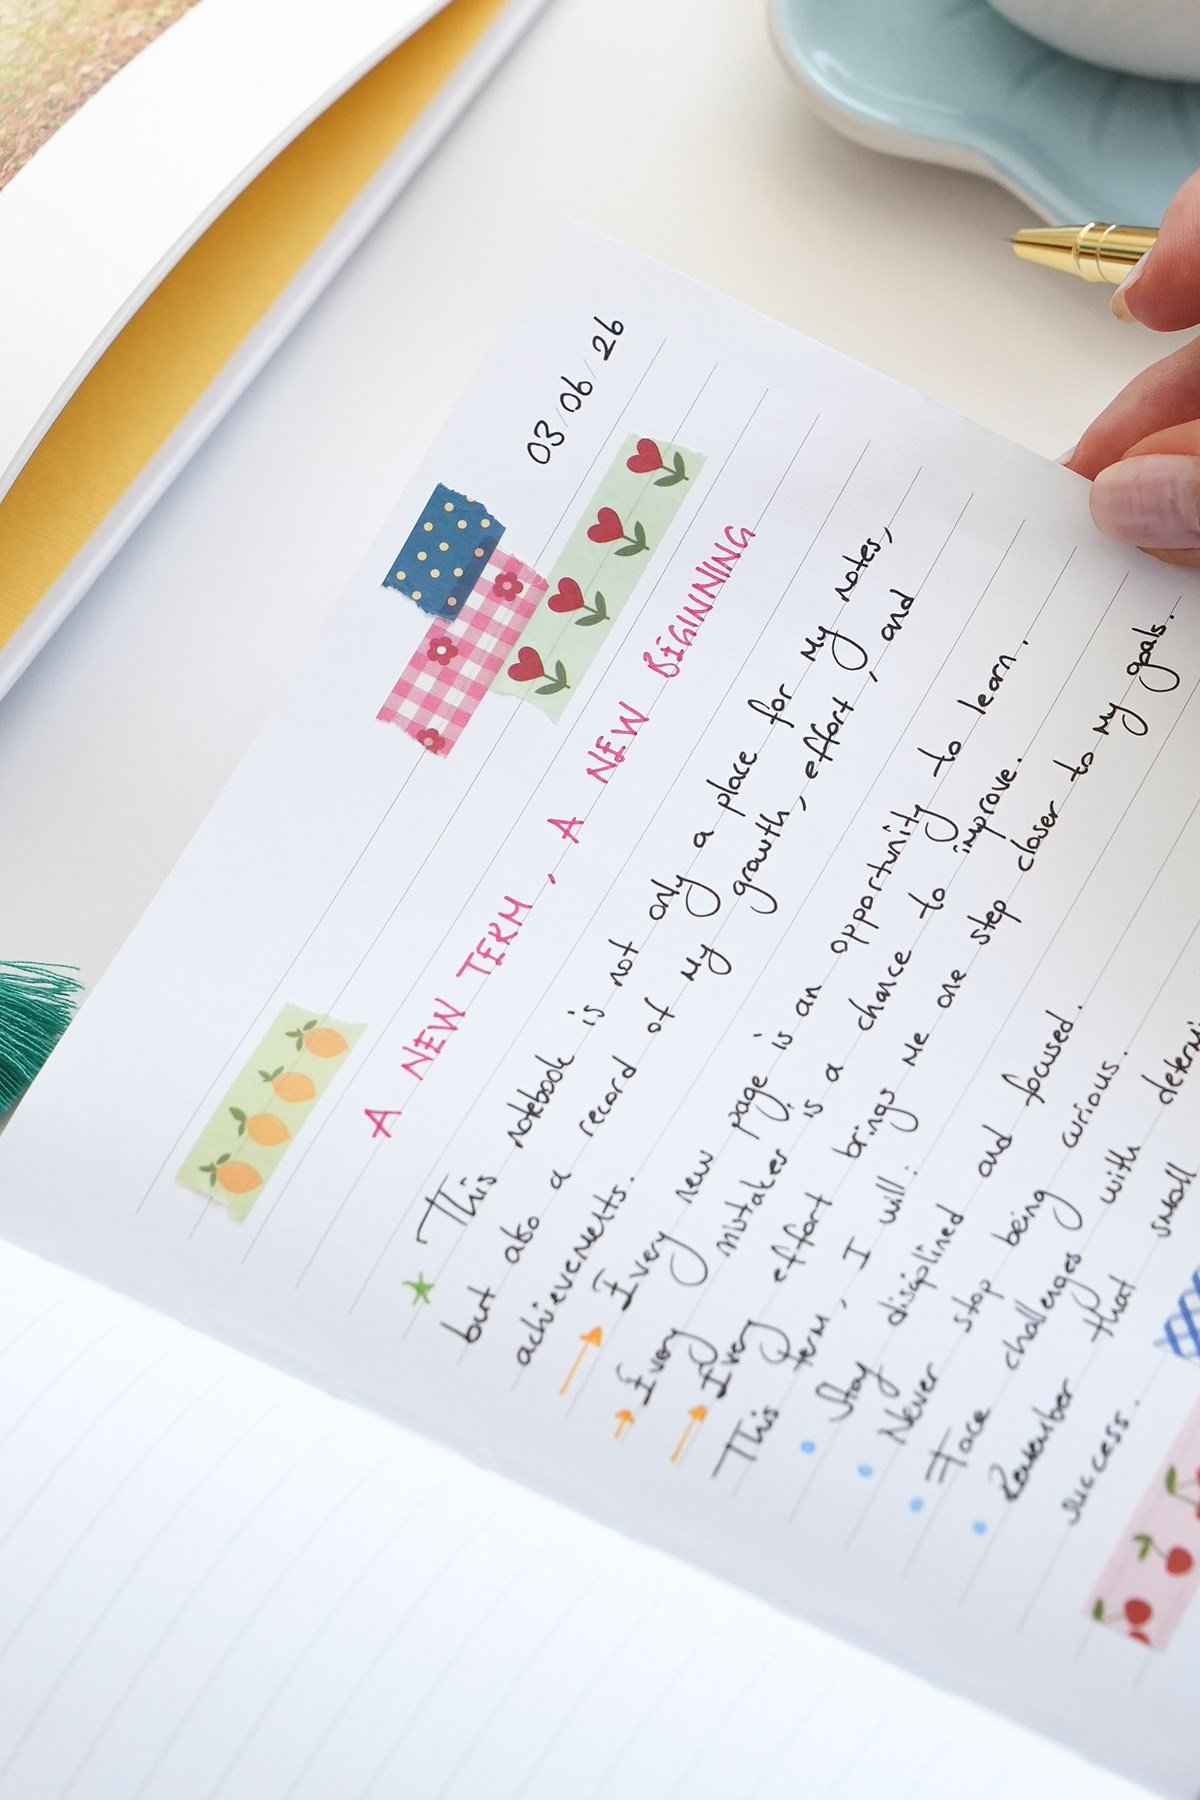 03/06/26
A NEW TERM, A NEW BEGINNING
This notebook is not only a place for my notes,
but also a record of my growth, effort, and
achievements.
Every new page is an opportunity to learn.
Every mistake is a chance to improve.
Every effort brings me one step closer to my goals.
This term, I will:
Stay disciplined and focused.
Never stop being curious.
Face challenges with determ
Remember that small
success.